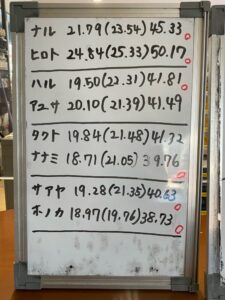 ナル 21.79(23.54)45.33
ヒロト 24.84(25.33)50.17
ハル 19.50(22.31)41.81
20.10(21.39)41.49
タクト 19.84(21.48)41.32
ナナミ 18.71(21.05)39.76
サアヤ 19.28(21.35)40.63
ホノカ 18.97(19.76)38.73